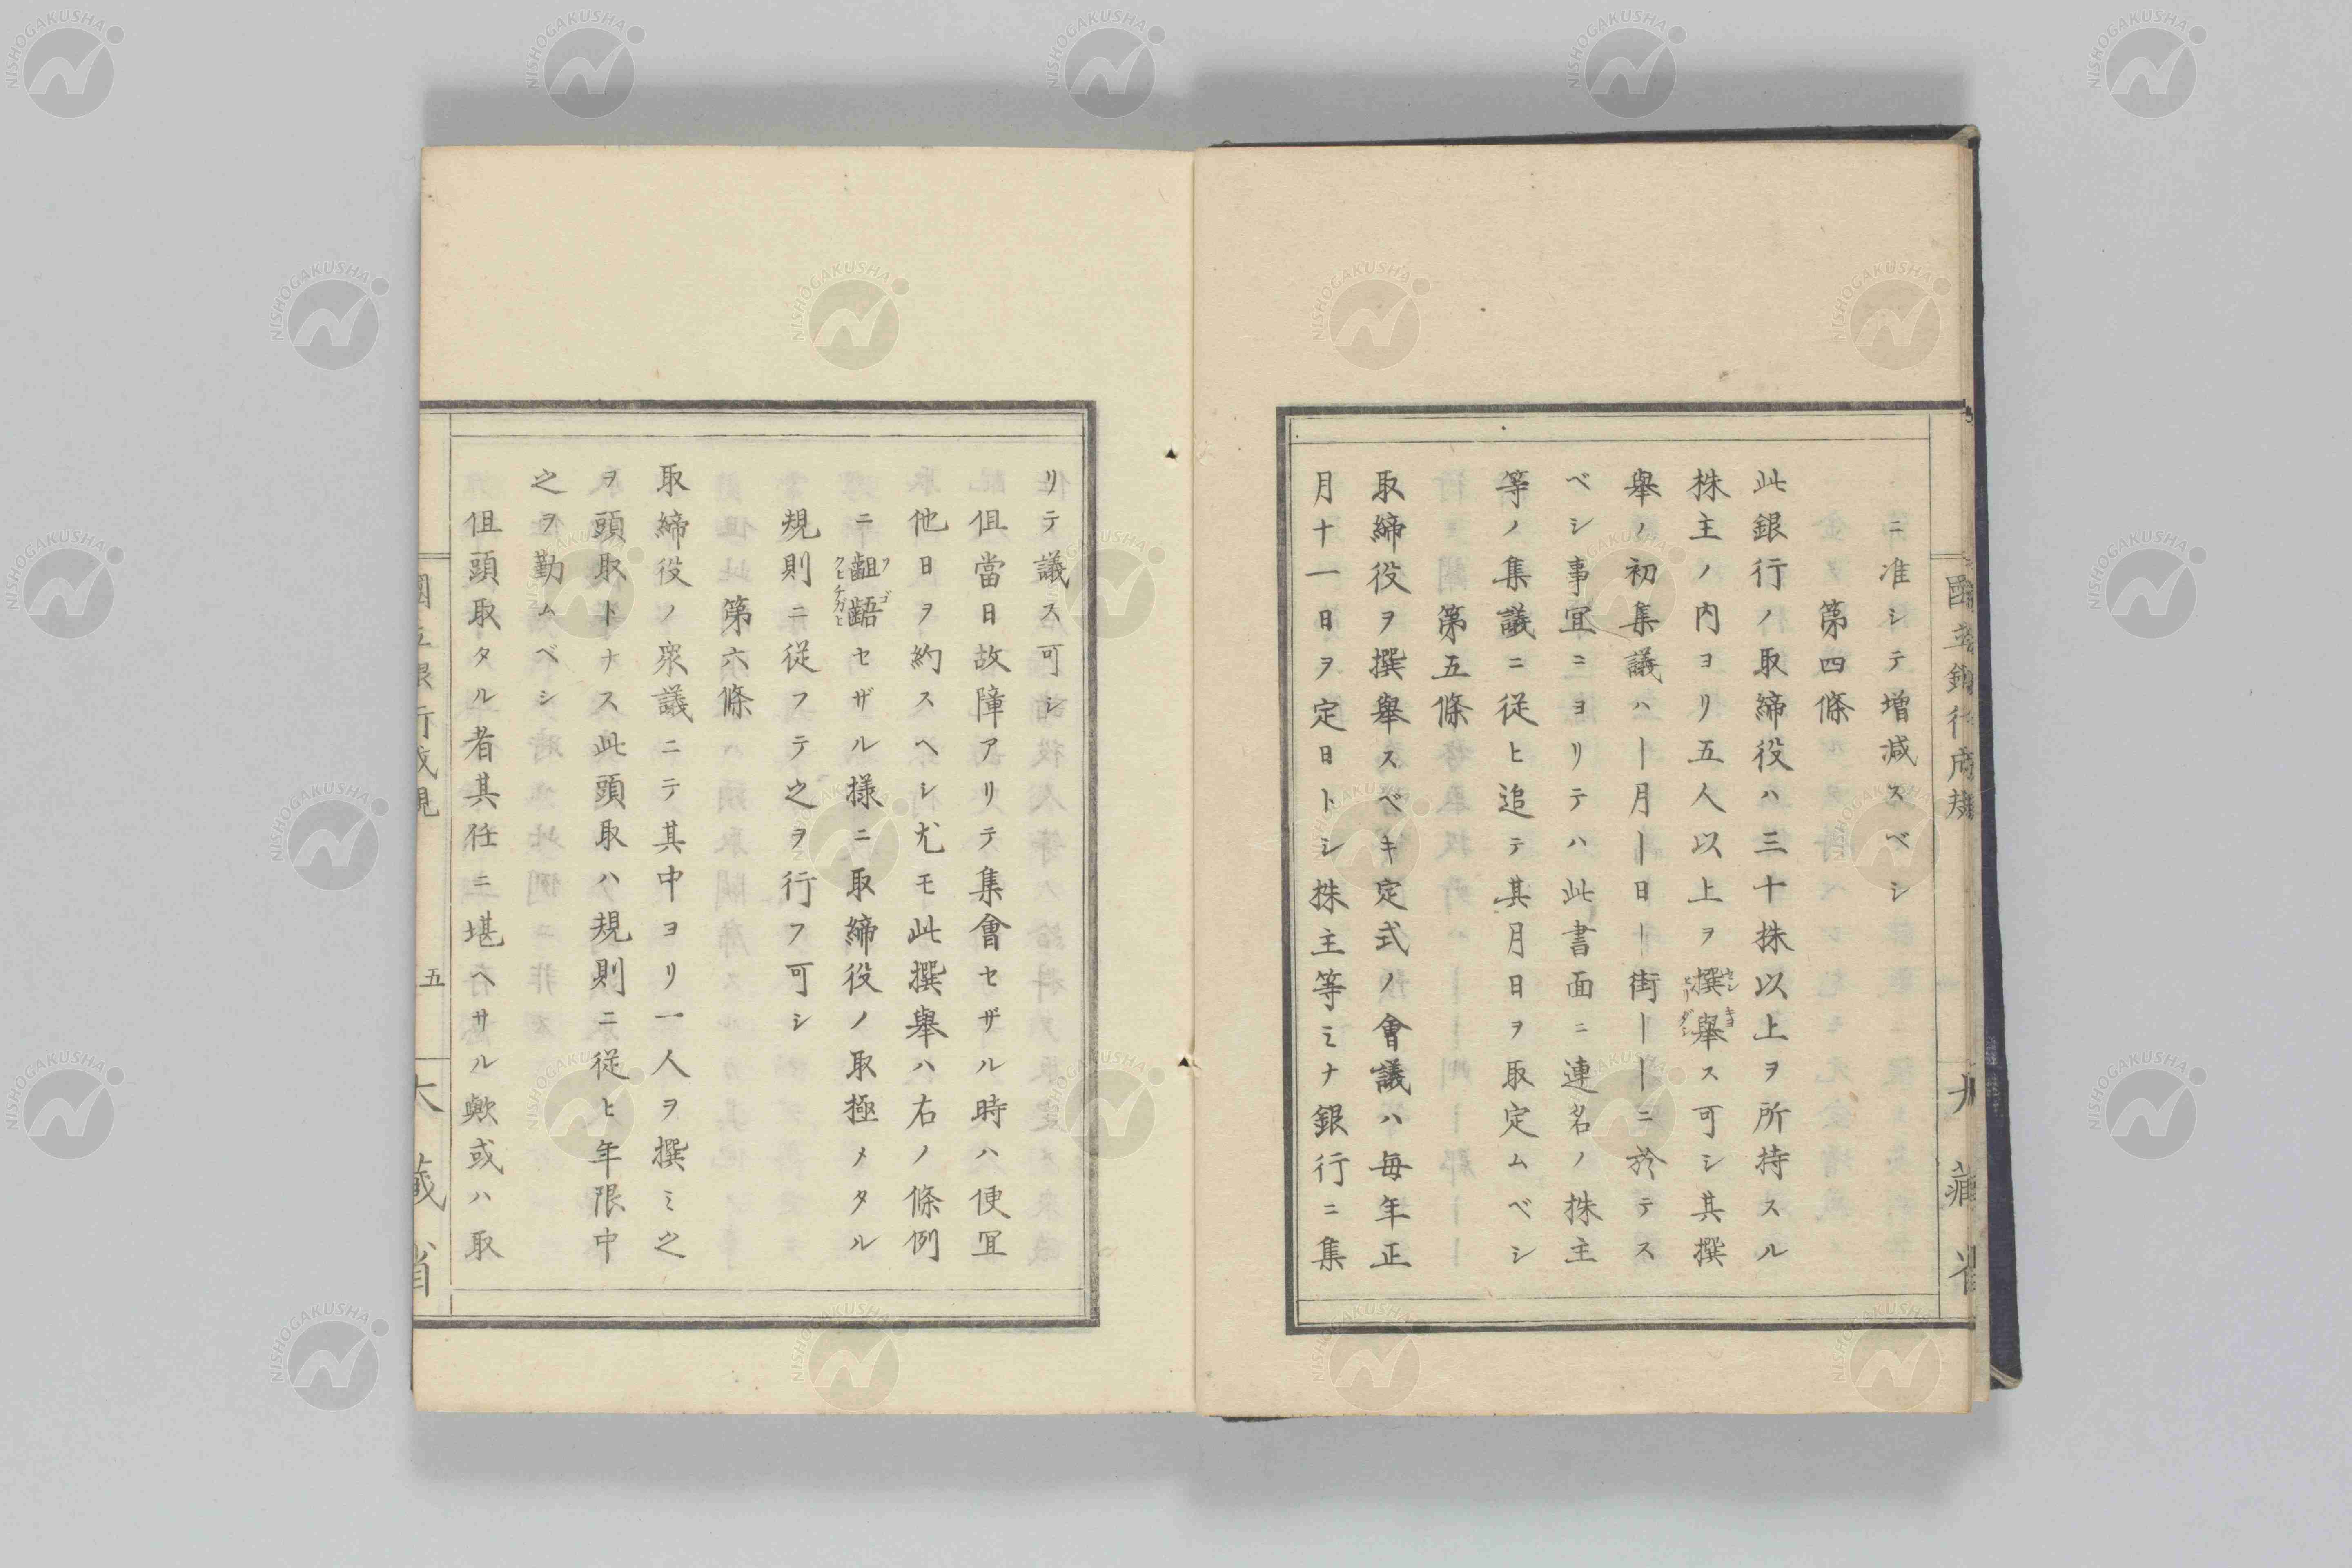 ニ准シテ増減スベシ
第四條
此銀行ノ取締役ハ三十株以上ヲ所持スル
株主ノ内ヨリ五人以上ヲ撰舉ス可シ其撰
舉ノ初集議ハ〡月〡日〡街〡〡ニ於テス
ベシ事宜ニヨリテハ此書面ニ連名ノ株主
等ノ集議ニ従ヒ追テ其月日ヲ取定ムベシ
第五條
取締役ヲ撰舉スベキ定式ノ會議ハ毎年正
月十一日ヲ定日トシ株主等ミナ銀行ニ集
リテ議ス可シ
但當日故障アリテ集會セザル時ハ便宜
他日ヲ約スヘシ尤モ此撰舉ハ右ノ條例
ニ齟齬セザル様ニ取締役ノ取極メタル
規則ニ従フテ之ヲ行フ可シ
第六條
取締役ノ衆議ニテ其中ヨリ一人ヲ撰ミ之
ヲ頭取トナス此頭取ハ規則ニ従ヒ年限中
之ヲ勤ムベシ
但頭取タル者其任ニ堪ヘサル歟或ハ取
國立銀行成規
五
大藏省
NISHOGAKUSHA